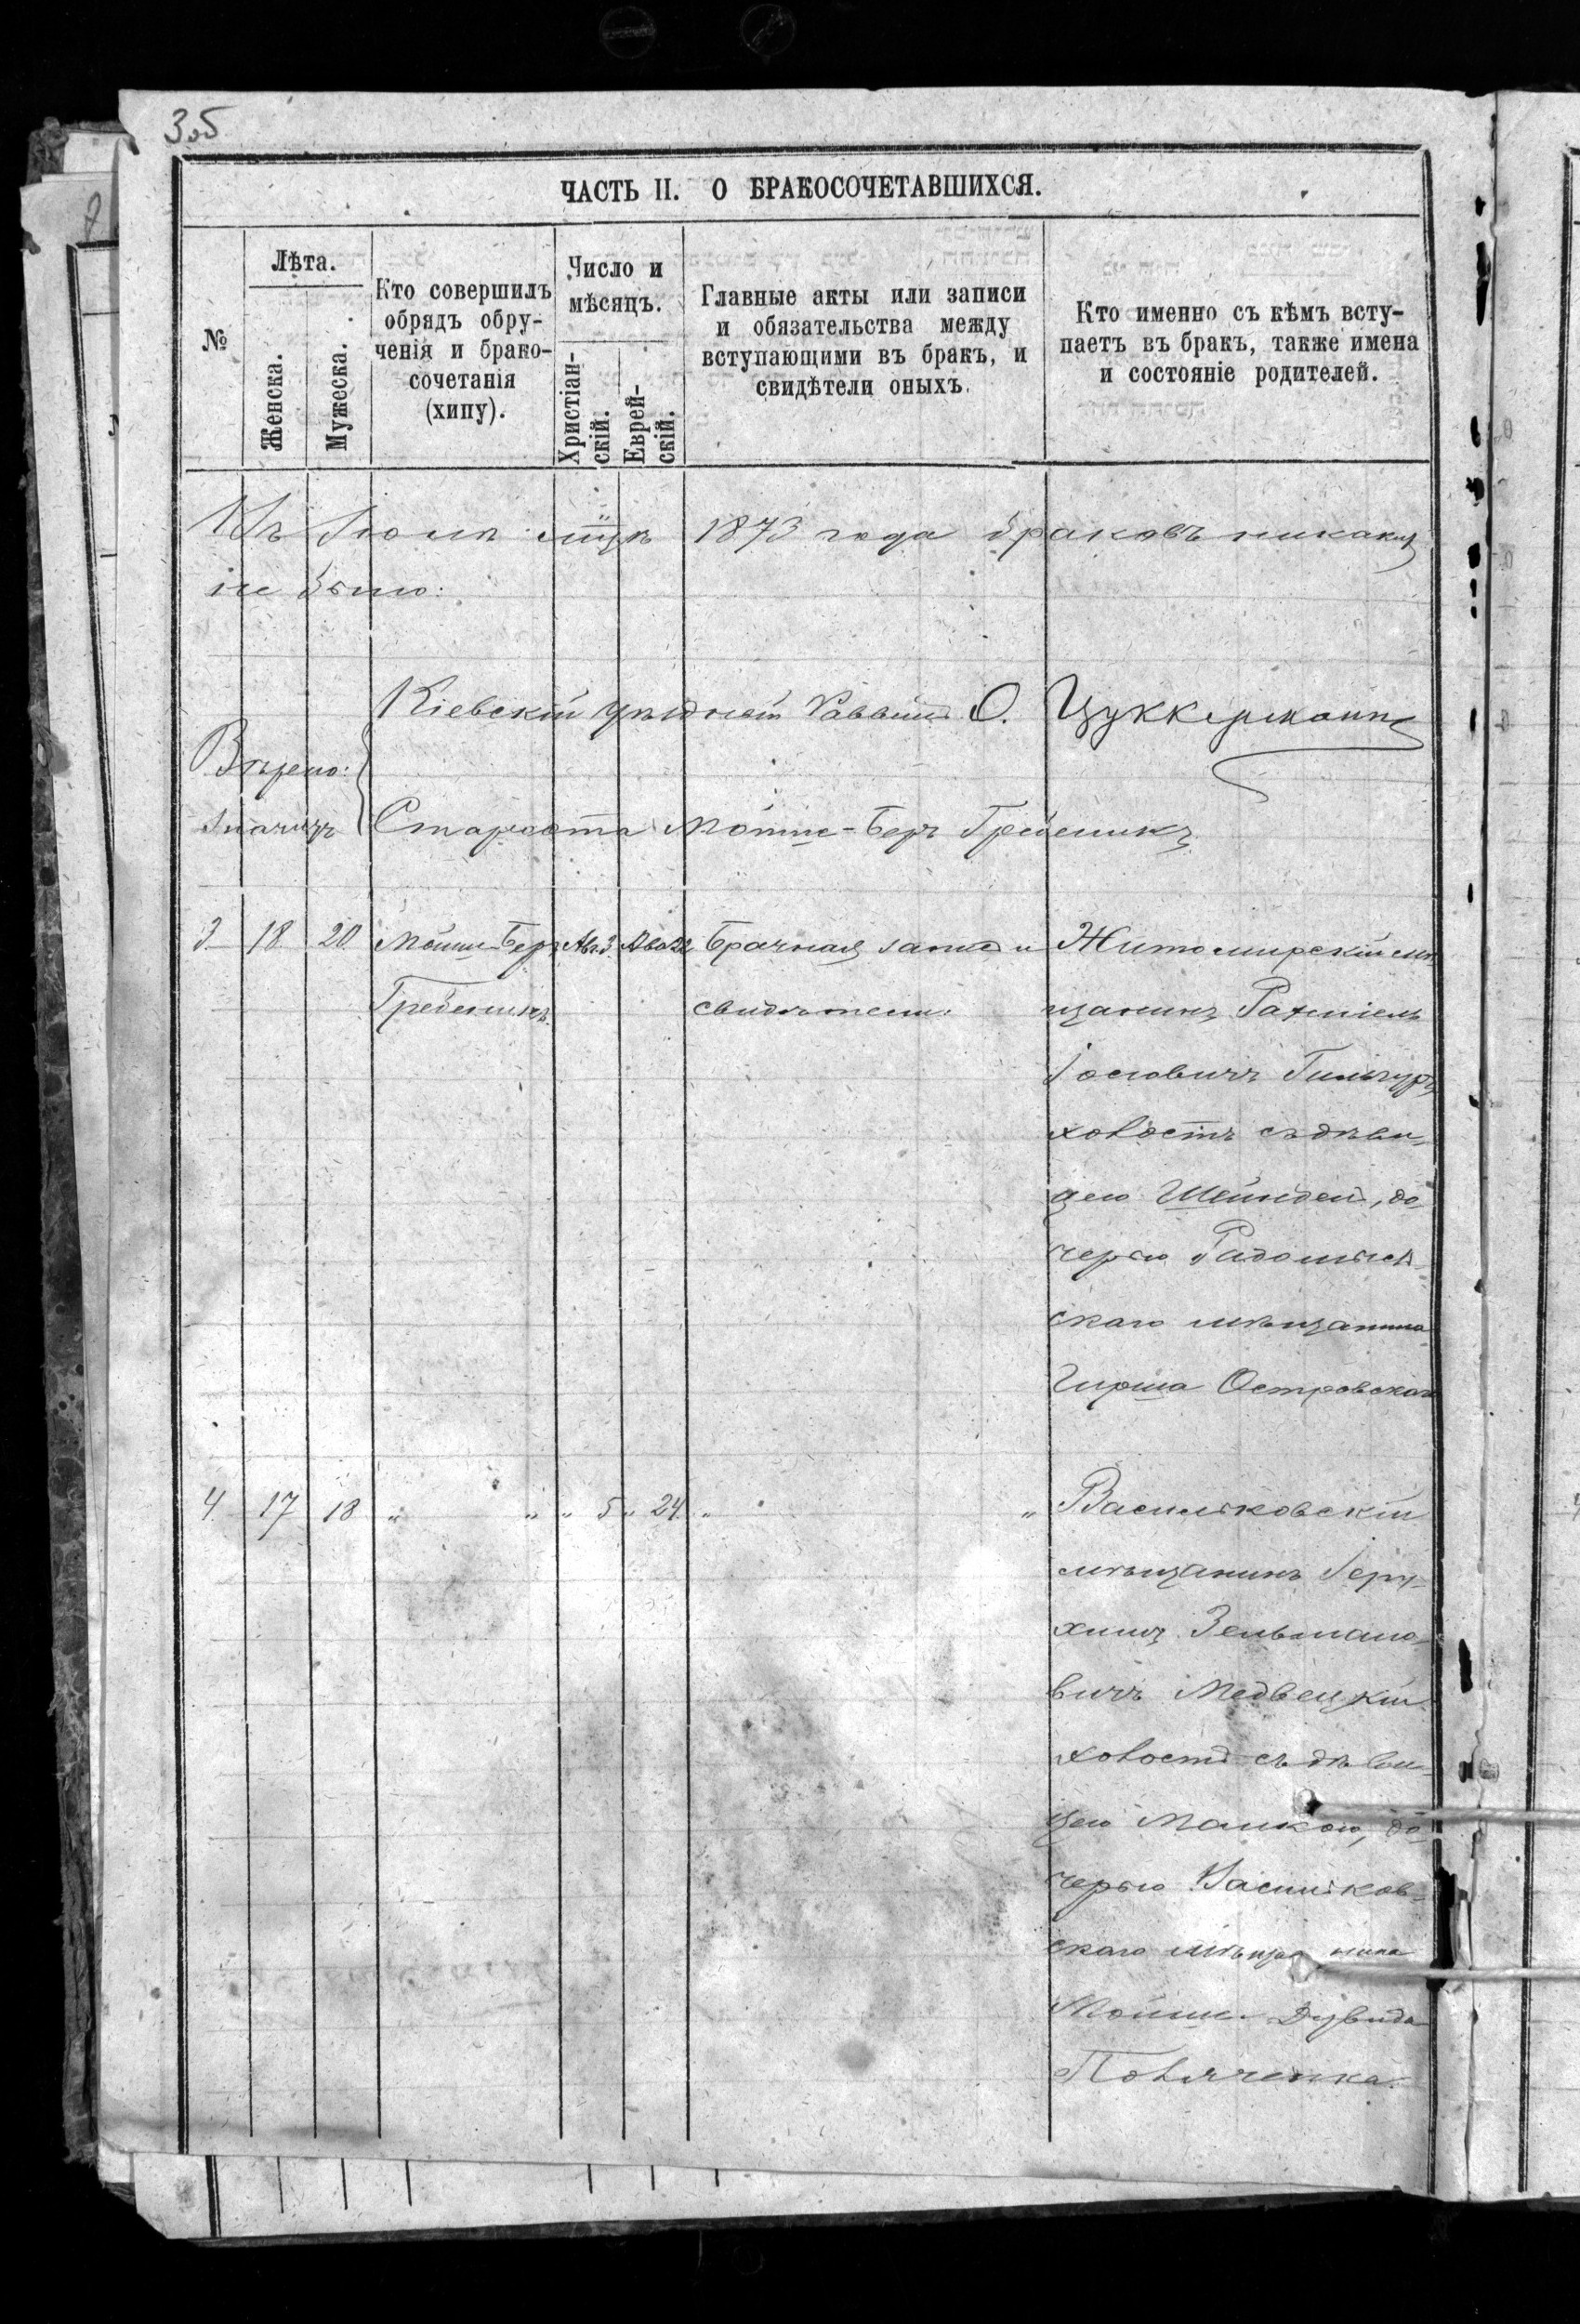 3об
ЧАСТЬ II. О БРАКОСОЧЕТАВШИХСЯ.
№
Лѣта.
Женска.
Мужеска.
Кто совершилъ
обрядъ обру-
ченія и брако-
сочетанія
(хипу).
Число и
мѣсяцъ.
Христіан-
скій.
Еврей-
скій.
Главные акты или записи
и обязательства между
вступающими въ бракъ, и
свидѣтели оныхъ.
Кто именно съ кѣмъ всту-
паетъ въ бракъ, также имена
и состояніе родителей.
Въ Іюлѣ мцѣ 1873 года браковъ никаких
не было:
Кіевскій уѣздный Раввинъ О. Цуккерманъ
Вѣрно:
Староста Мойше-Беръ Гребеникъ
3 18 20 Мойше-Беръ Авг. 3. Ава 22 Брачная запись и Житомирскій мѣ-
Гребеникъ. свидѣтели: щанинъ Рахміель
Іосіовичъ
холостъ съ дѣви-
цею Шейндей, до-
черью Радомысль-
скаго мѣщанина
Гирша Островскаго
4 17 18 „ „ „ 5 „ 24 „ „ Васильковскій
мѣщанинъ Іеру-
химъ Зельмано-
вичъ Медвецкій
холостъ съ дѣви-
цею Малкою, до-
черью Васильков-
скаго мѣщанина
Мойше Дувида